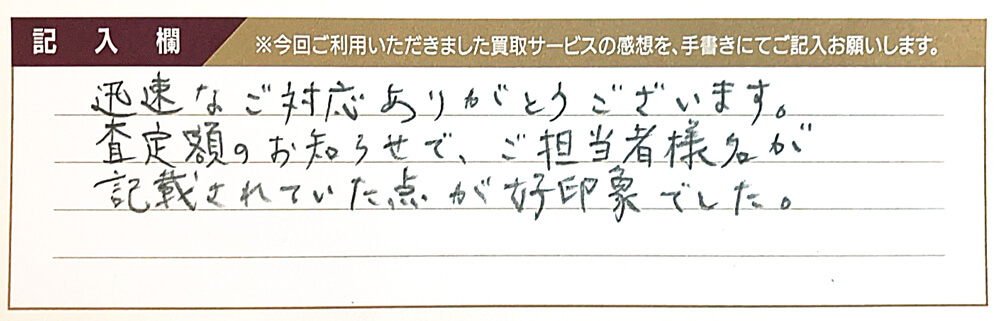 記入欄
※今回ご利用いただきました買取サービスの感想を、手書きにてご記入お願いします。
迅速なご対応ありがとうございます。
査定額のお知らせで、ご担当者様名が
記載されていた点が好印象でした。